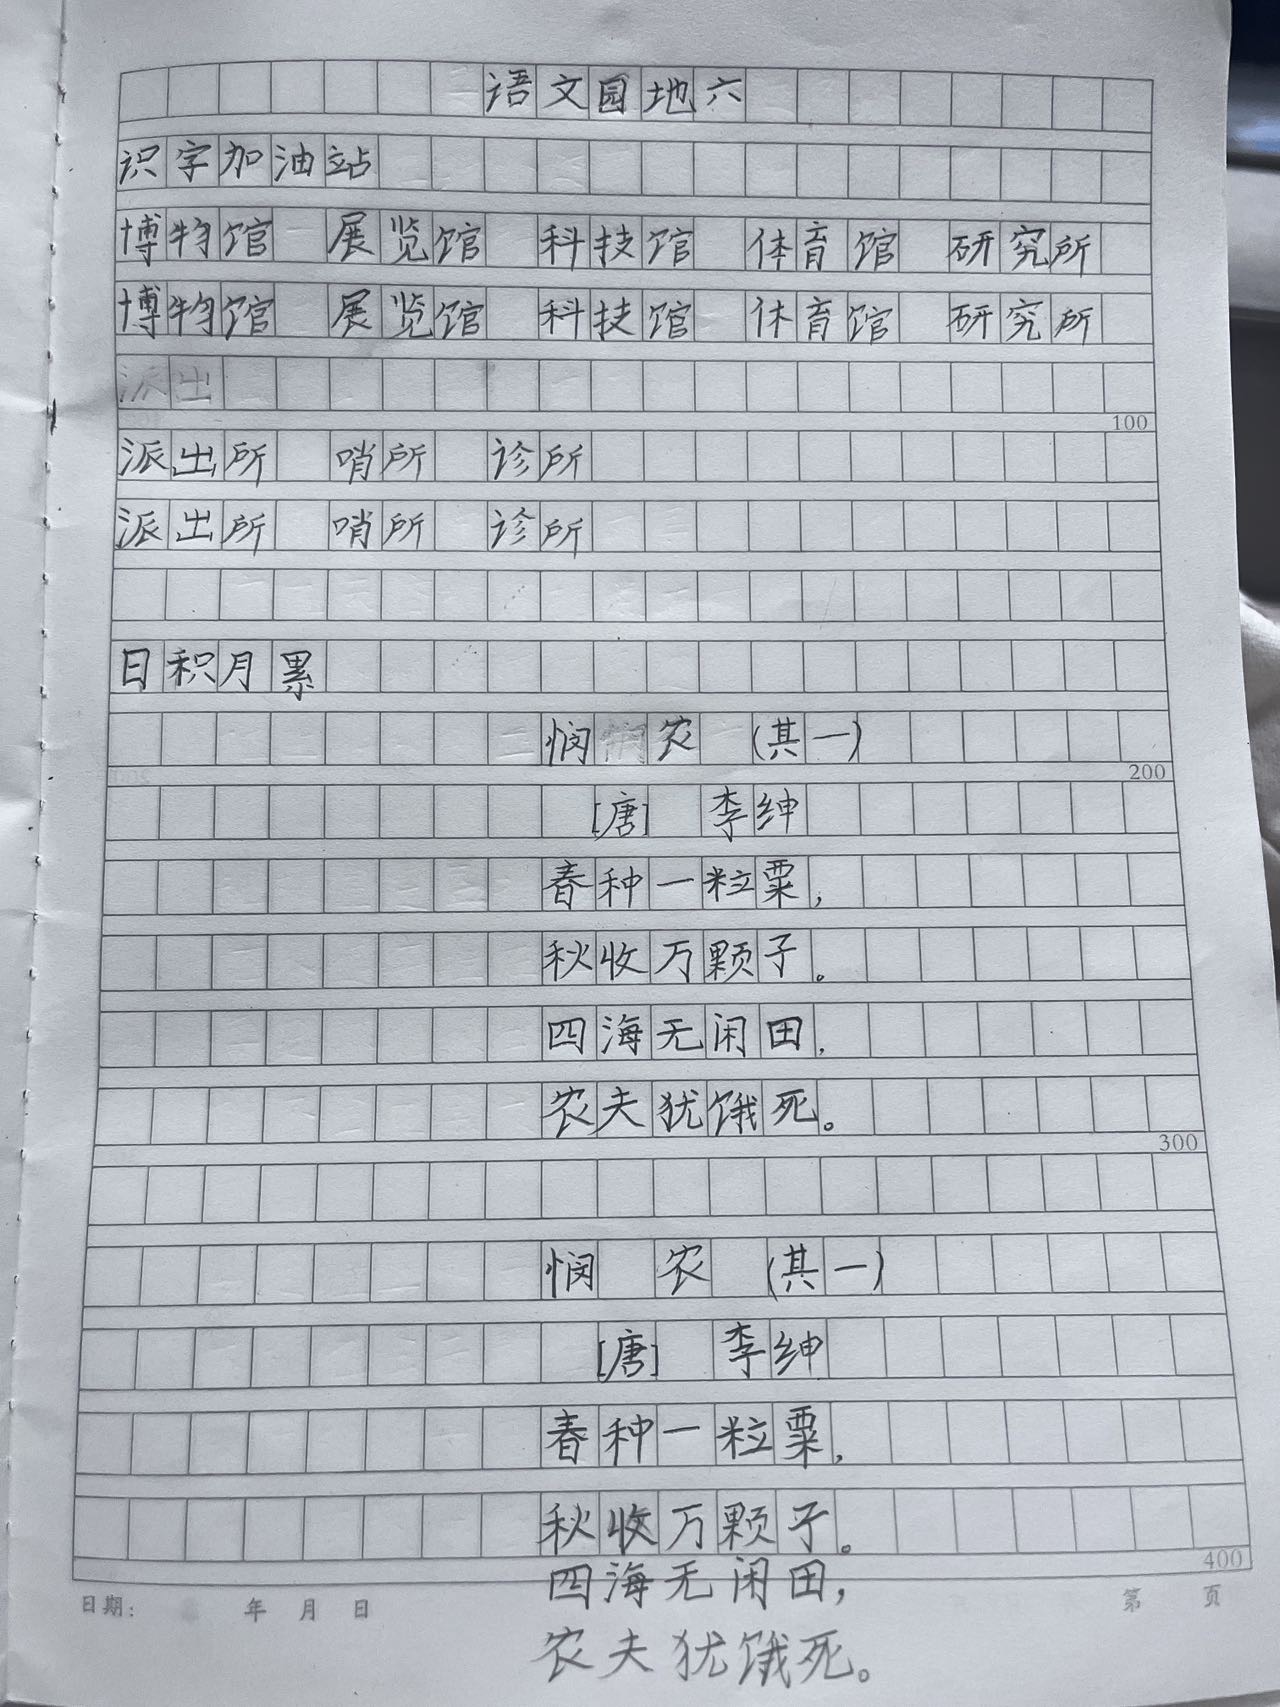 语文园地六
识字加油站
博物馆 展览馆 科技馆 体育馆 研究所
博物馆 展览馆 科技馆 体育馆 研究所
派出
100
派出所 哨所 诊所
派出所 哨所 诊所
日积月累
悯 农 (其一)
200
[唐] 李绅
春种一粒粟,
秋收万颗子。
四海无闲田,
农夫犹饿死。
300
悯 农 (其一)
[唐] 李绅
春种一粒粟,
秋收万颗子。
400
四海无闲田,
日期: 年 月 日 第 页
农夫犹饿死。